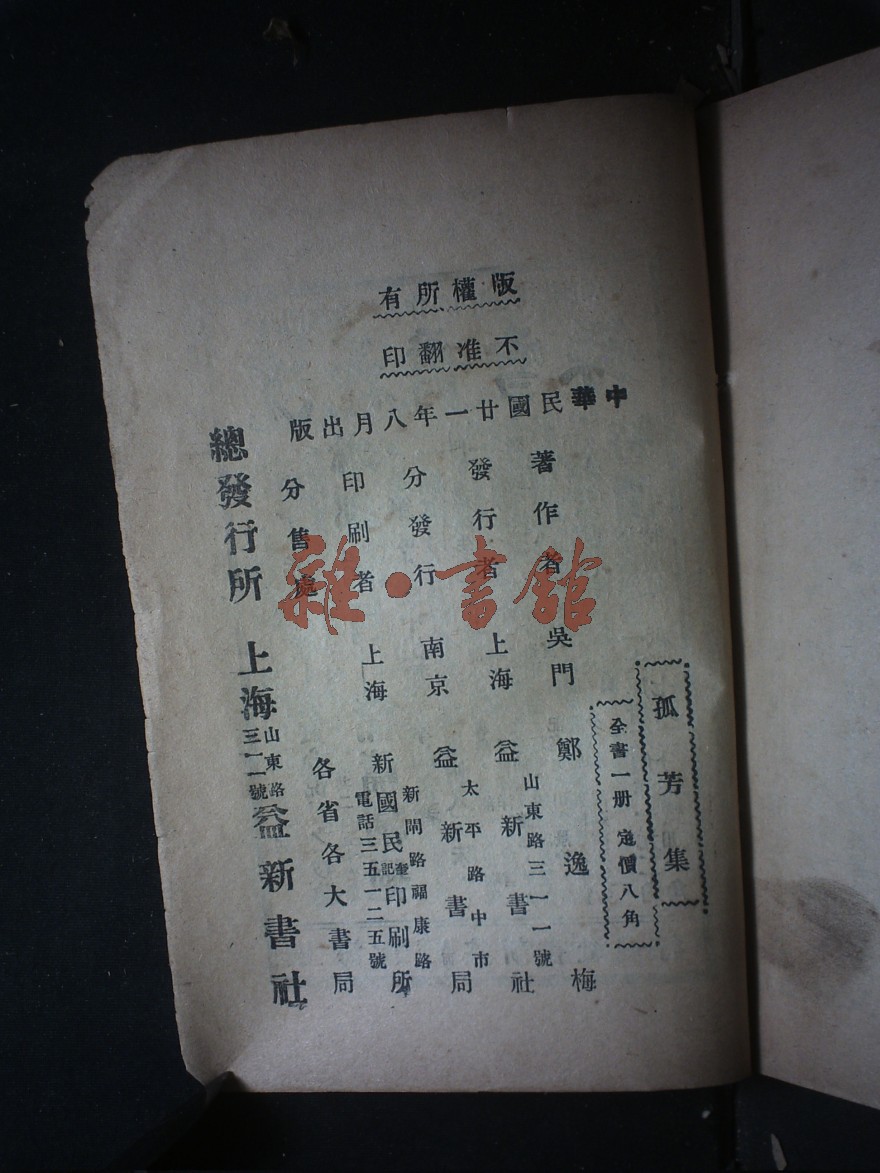 版權所有
不准翻印
中華民國廿一年八月出版
孤芳集
全書一册 定價八角
著作者 吳門 鄭逸梅
發行者 上海 益新書社
山東路三一一號
分發行 南京 益新書局
太平路中市
印刷者 上海 新國民奎記印刷所
新閘路福康路
電話三五一二五號
分售處 各省各大書局
總發行所 上海山東路三一一號益新書社
雜·書館